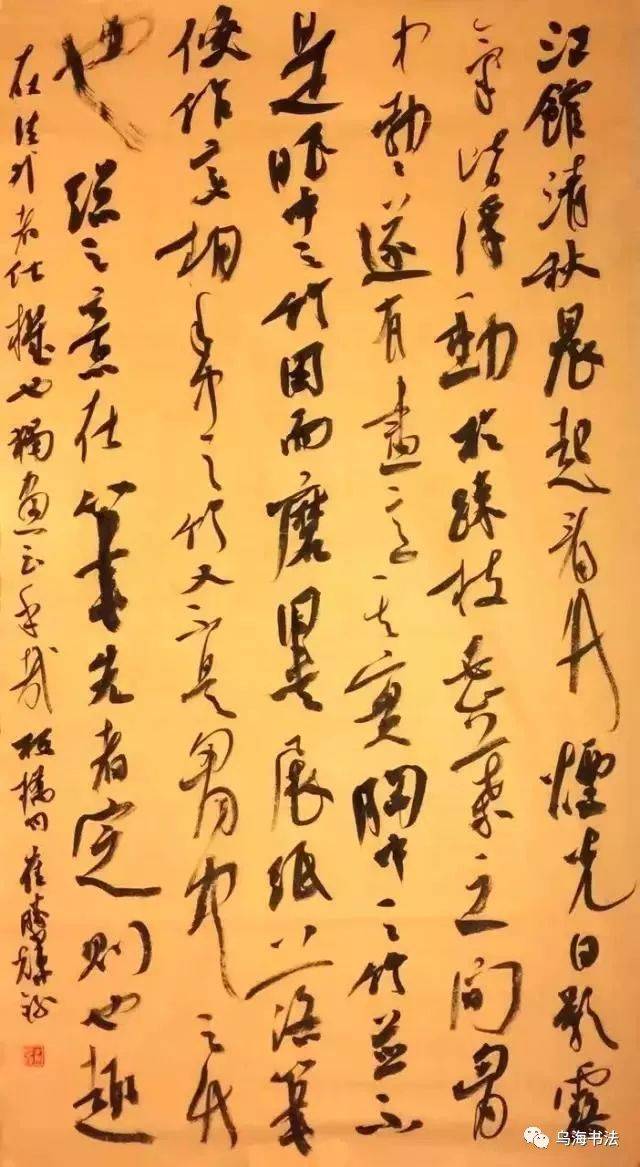 江館清秋晨起看竹煙光日影露
氣皆浮動於疎枝密葉之間胸
中勃勃遂有畫意其實胸中之竹並不
是眼中之竹因而磨墨展紙落筆
倏作變相手中之竹又不是胸中之竹
也總之意在筆先者定則也趣
在法外者化機也獨畫云乎哉 板橋句 崔
乌海书法